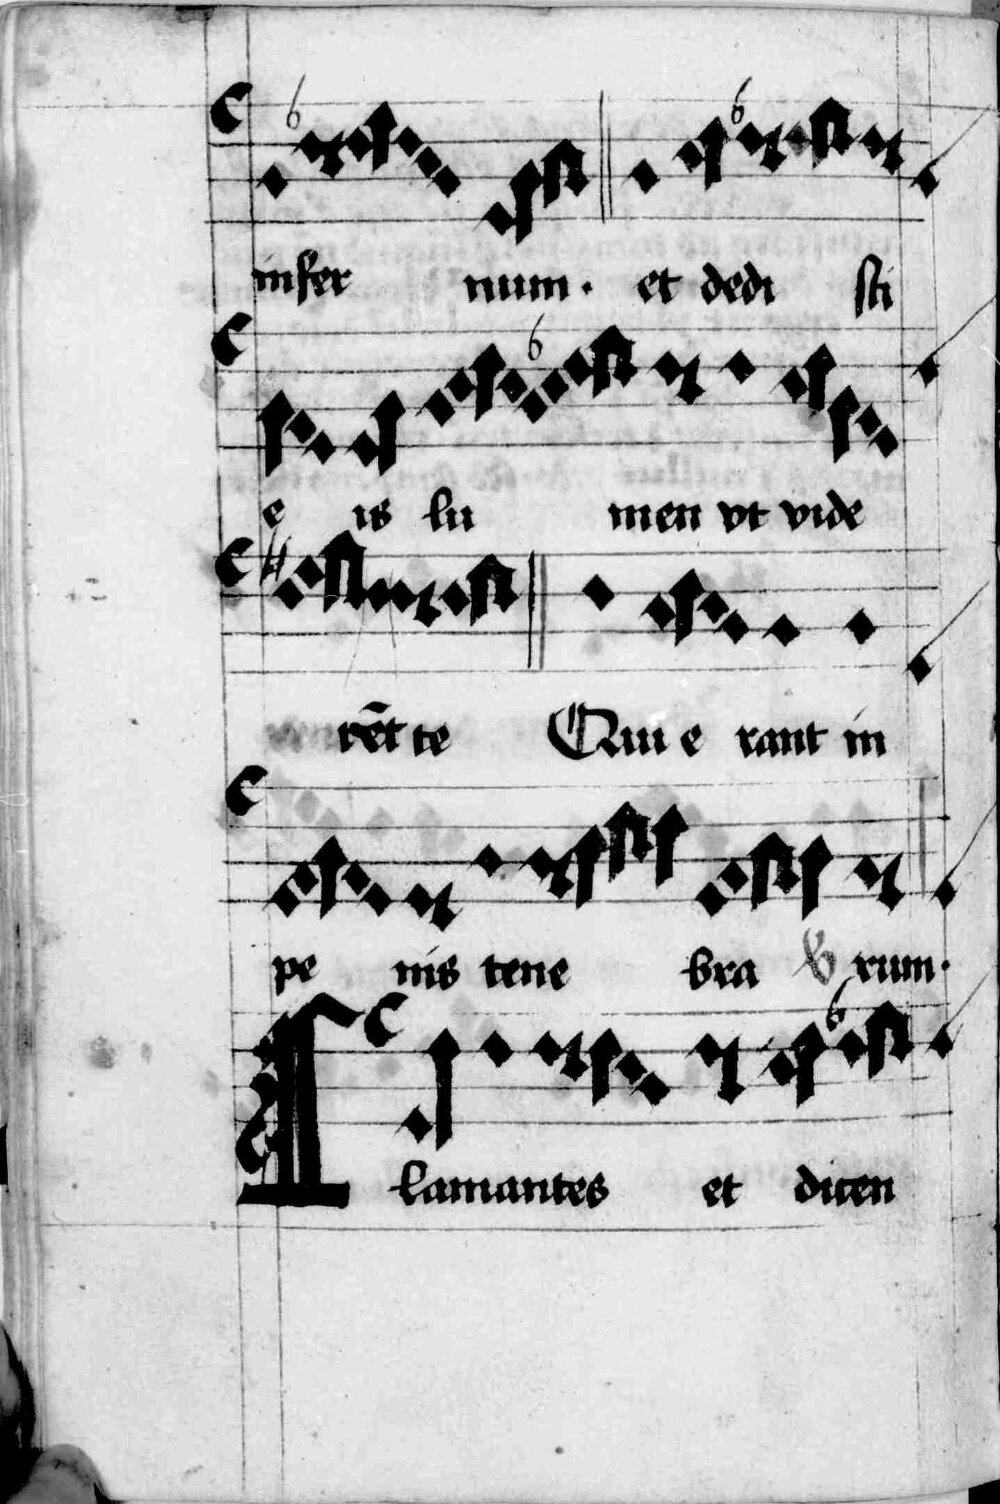 infer num. et dedi sti
e is lu men vt vide
rēt te Qui e rant in
pe nis tene bra rum.
Clamantes et dicen